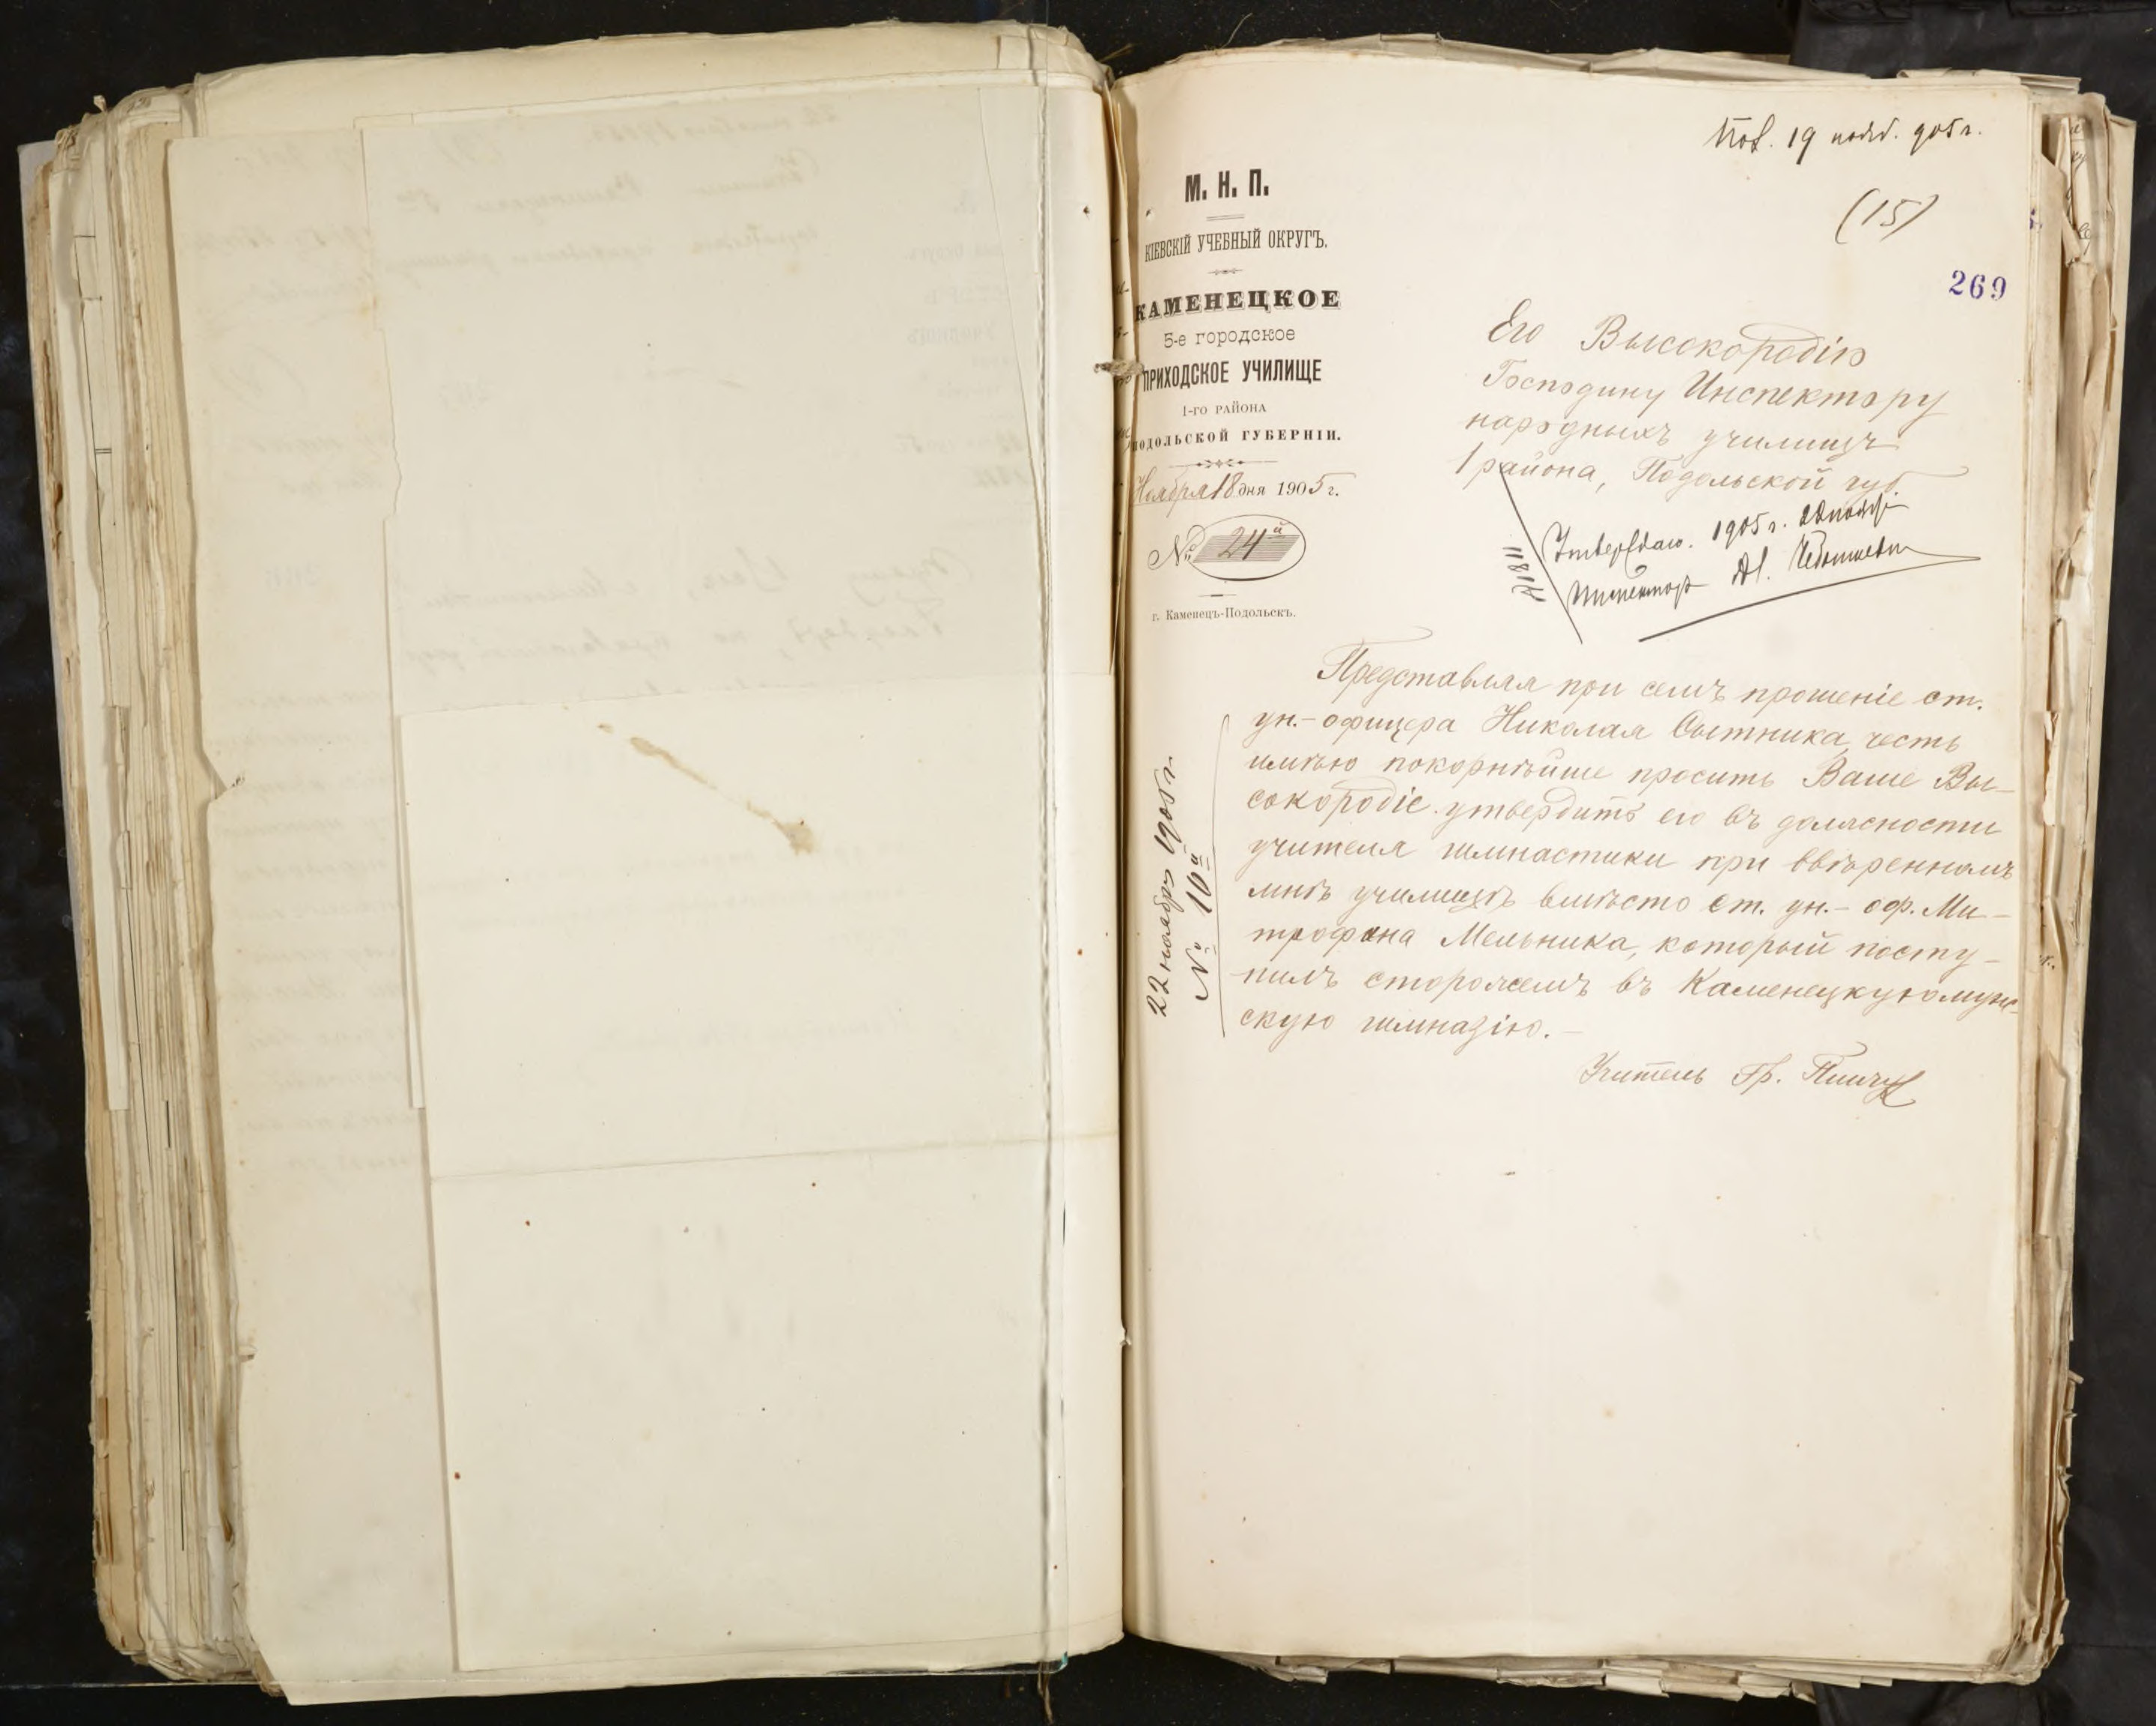 Пол. 19 нояб. 905 г.
(15)
269
М. Н. П.
КІЕВСКІЙ УЧЕБНЫЙ ОКРУГЪ.
КАМЕНЕЦКОЕ
5-е городское
ПРИХОДСКОЕ УЧИЛИЩЕ
1-ГО РАЙОНА
ПОДОЛЬСКОЙ ГУБЕРНІИ.
Ноября 18 дня 1905 г.
№ 24й
г. Каменецъ-Подольскъ.
Его Высокородію
Господину Инспектору
народныхъ училищъ
1 района, Подольской губ.
Утверждаю. 1905 г. 22 нояб.
Инспекторъ
№ 1811
Представляя при семъ прошеніе ст.
ун.-офицера Николая Сытника, честь
имѣю покорнѣйше просить Ваше Вы-
сокородіе утвердить его въ должности
учителя гимнастики при ввѣренномъ
мнѣ училищѣ вмѣсто ст. ун.-оф. Ми-
трофана Мельника, который посту-
пилъ сторожемъ въ Каменецкую муж-
скую гимназію.—
Учитель Гр.
22 ноября 1905 г.
№ 10й